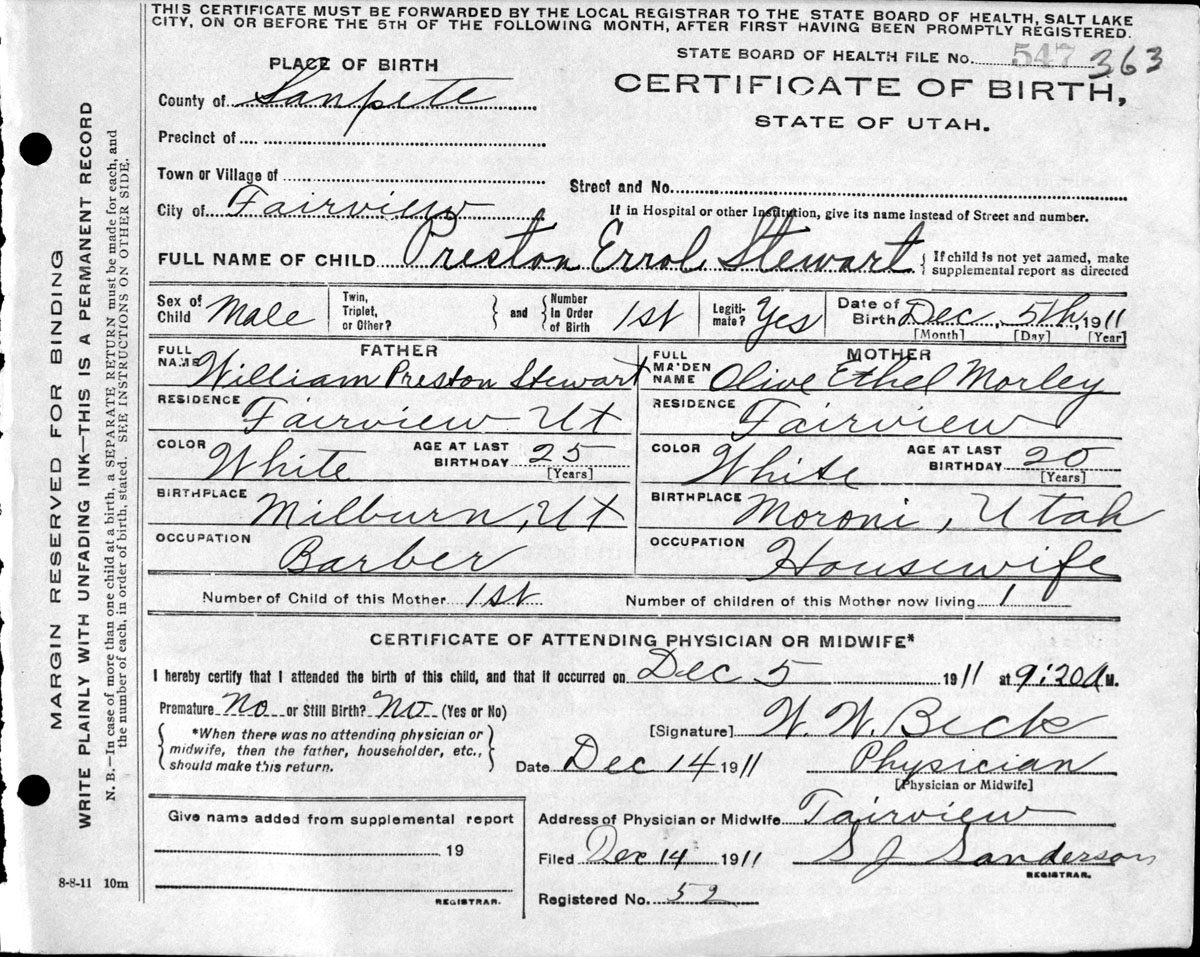 THIS CERTIFICATE MUST BE FORWARDED BY THE LOCAL REGISTRAR TO THE STATE BOARD OF HEALTH, SALT LAKE
CITY, ON OR BEFORE THE 5TH OF THE FOLLOWING MONTH, AFTER FIRST HAVING BEEN PROMPTLY REGISTERED.
STATE BOARD OF HEALTH FILE No. 547 363
CERTIFICATE OF BIRTH,
STATE OF UTAH.
PLACE OF BIRTH
County of Sanpete
Precinct of
Town or Village of
Street and No.
City of Fairview
If in Hospital or other Institution, give its name instead of Street and number.
FULL NAME OF CHILD Preston Errol Stewart { If child is not yet named, make
supplemental report as directed
Sex of Child Male
Twin, Triplet, or Other? } and { Number In Order of Birth 1st
Legiti-mate? Yes
Date of Birth Dec, 5th, 1911
[Month] [Day] [Year]
FATHER
FULL NAME William Preston Stewart
RESIDENCE Fairview Ut
COLOR White AGE AT LAST BIRTHDAY 25
[Years]
BIRTHPLACE Milburn, Ut
OCCUPATION Barber
MOTHER
FULL MAIDEN NAME Olive Ethel Morley
RESIDENCE Fairview
COLOR White AGE AT LAST BIRTHDAY 20
[Years]
BIRTHPLACE Moroni, Utah
OCCUPATION Housewife
Number of Child of this Mother 1st Number of children of this Mother now living 1
CERTIFICATE OF ATTENDING PHYSICIAN OR MIDWIFE*
I hereby certify that I attended the birth of this child, and that it occurred on Dec 5 1911 at 9:20 A M.
Premature No or Still Birth? No (Yes or No)
{ *When there was no attending physician or
midwife, then the father, householder, etc.,
should make this return. }
[Signature] W. W. Beck
Date Dec 14 1911 Physician
[Physician or Midwife]
Give name added from supplemental report
19
REGISTRAR.
Address of Physician or Midwife Fairview
Filed Dec 14 1911 S J Sanderson
REGISTRAR.
Registered No. 52
8-8-11 10m
MARGIN RESERVED FOR BINDING
WRITE PLAINLY WITH UNFADING INK—THIS IS A PERMANENT RECORD
N. B.—In case of more than one child at a birth, a SEPARATE RETURN must be made for each, and
the number of each, in order of birth, stated. SEE INSTRUCTIONS ON OTHER SIDE.